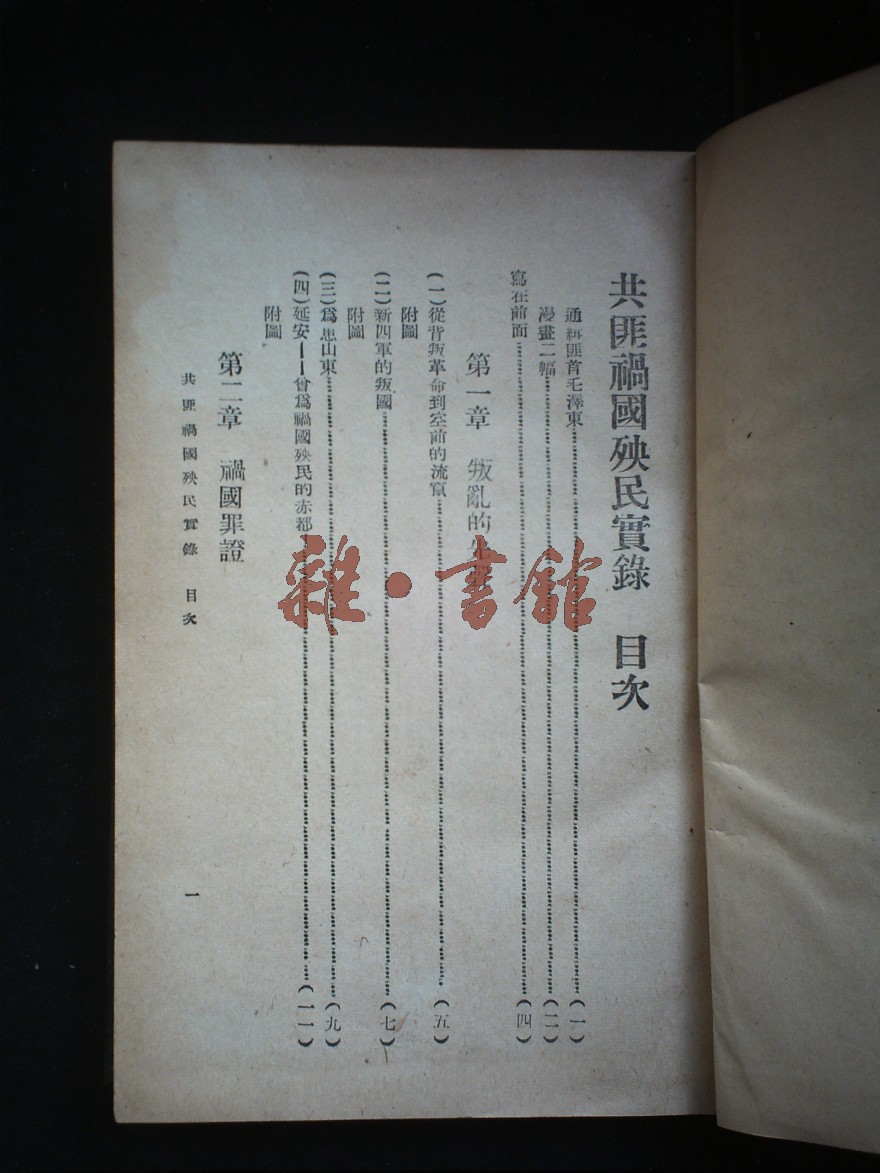 共匪禍國殃民實錄　目次
通緝匪首毛澤東……(一)
漫畫二幅……(二)
寫在前面……(四)
第一章　叛亂的
(一)從背叛革命到空前的流竄……(五)
附圖
(二)新四軍的叛國……(七)
附圖
(三)爲患山東……(九)
(四)延安——曾爲禍國殃民的赤都……(一一)
附圖
第二章　禍國罪證
共匪禍國殃民實錄　目次
一
雜·書館